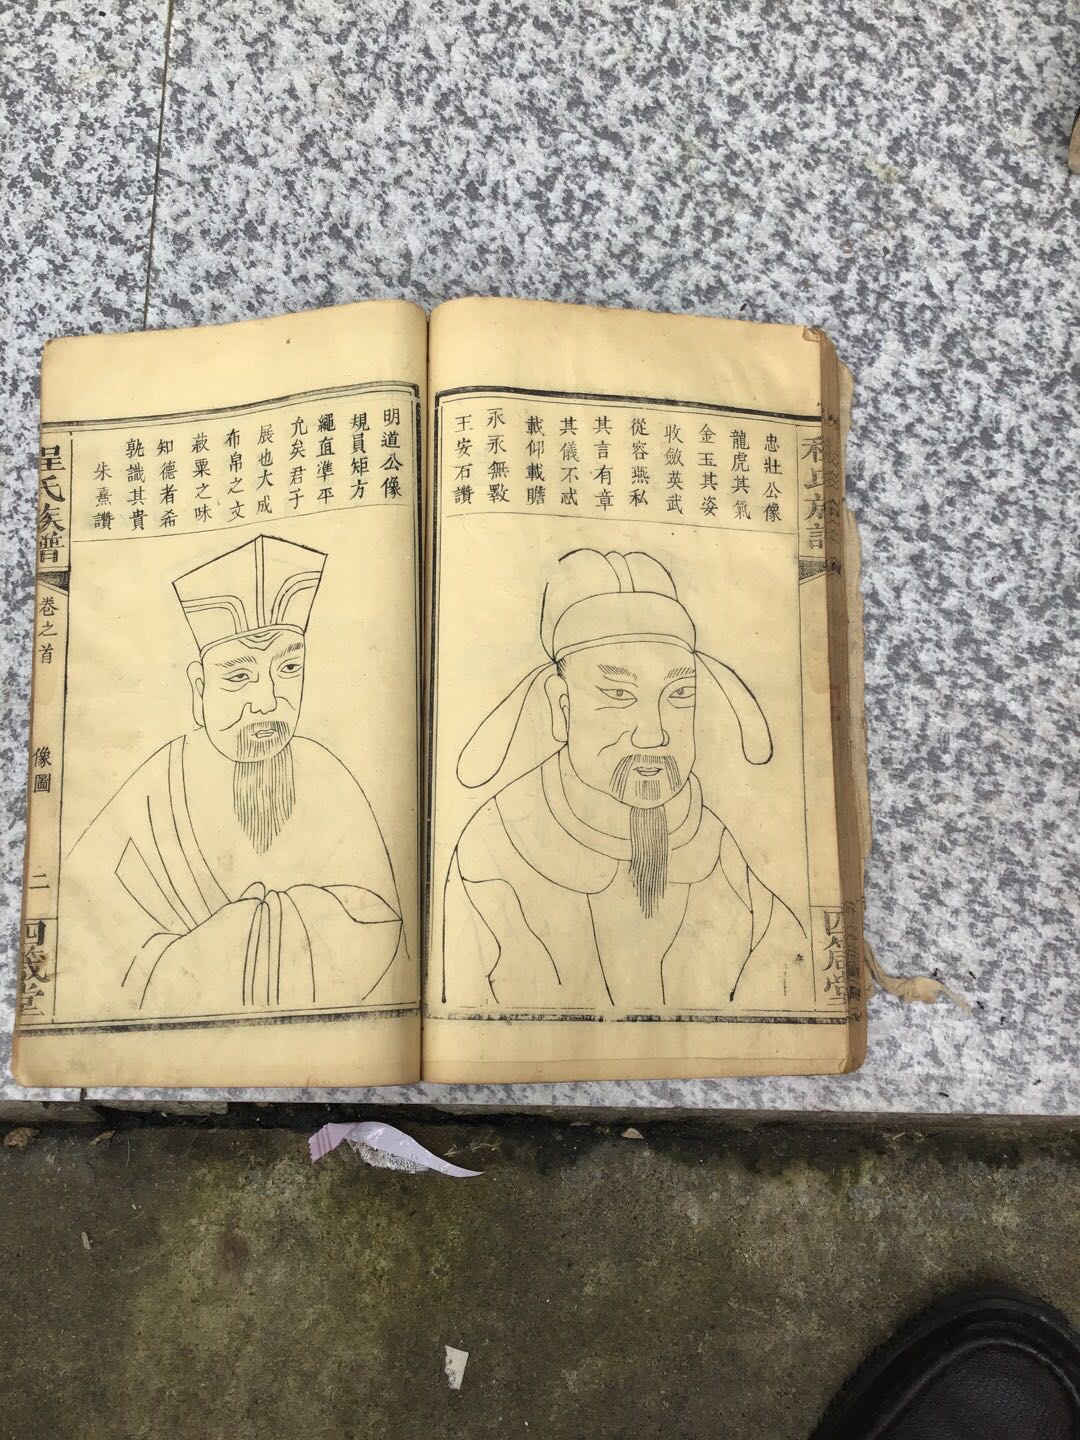 程氏族譜
四箴堂
忠壯公像
龍虎其氣
金玉其姿
收斂英武
從容燕私
其言有章
其儀不忒
載仰載瞻
永永無斁
王安石讚
明道公像
規員矩方
繩直準平
允矣君子
展也大成
布帛之文
菽粟之味
知德者希
孰識其貴
朱熹讚
程氏族譜
卷之首
像圖
二
四箴堂